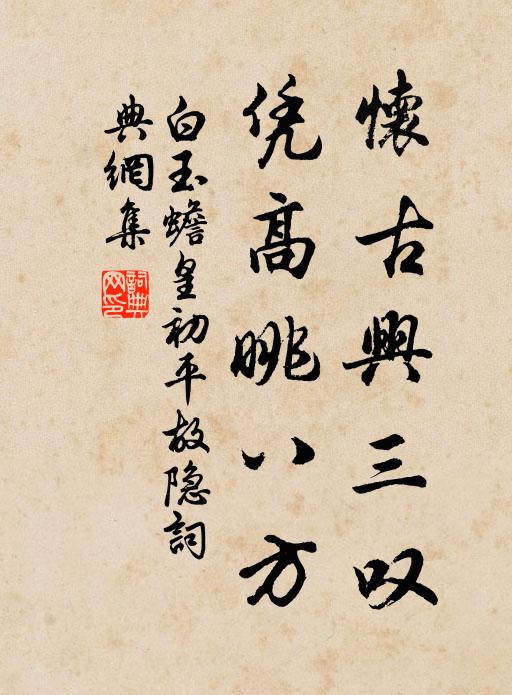 懷古興三叹
凭高眺八方
白玉蟾皇初平故隐詞
典網集
詞典网印